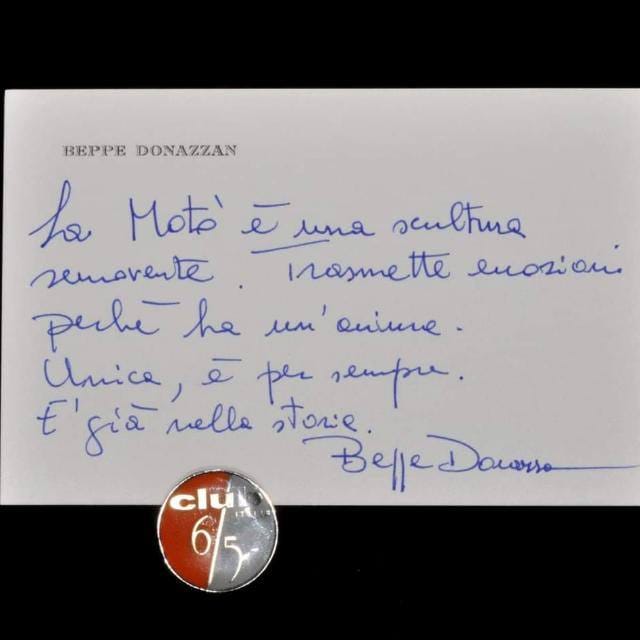 BEPPE DONAZZAN
La Moto' è una scultura
semovente. Trasmette emozioni
perchè ha un'anima.
Unica, è per sempre.
E' già nella storia.
Beppe Donazzan
club
ITALIA
6/5